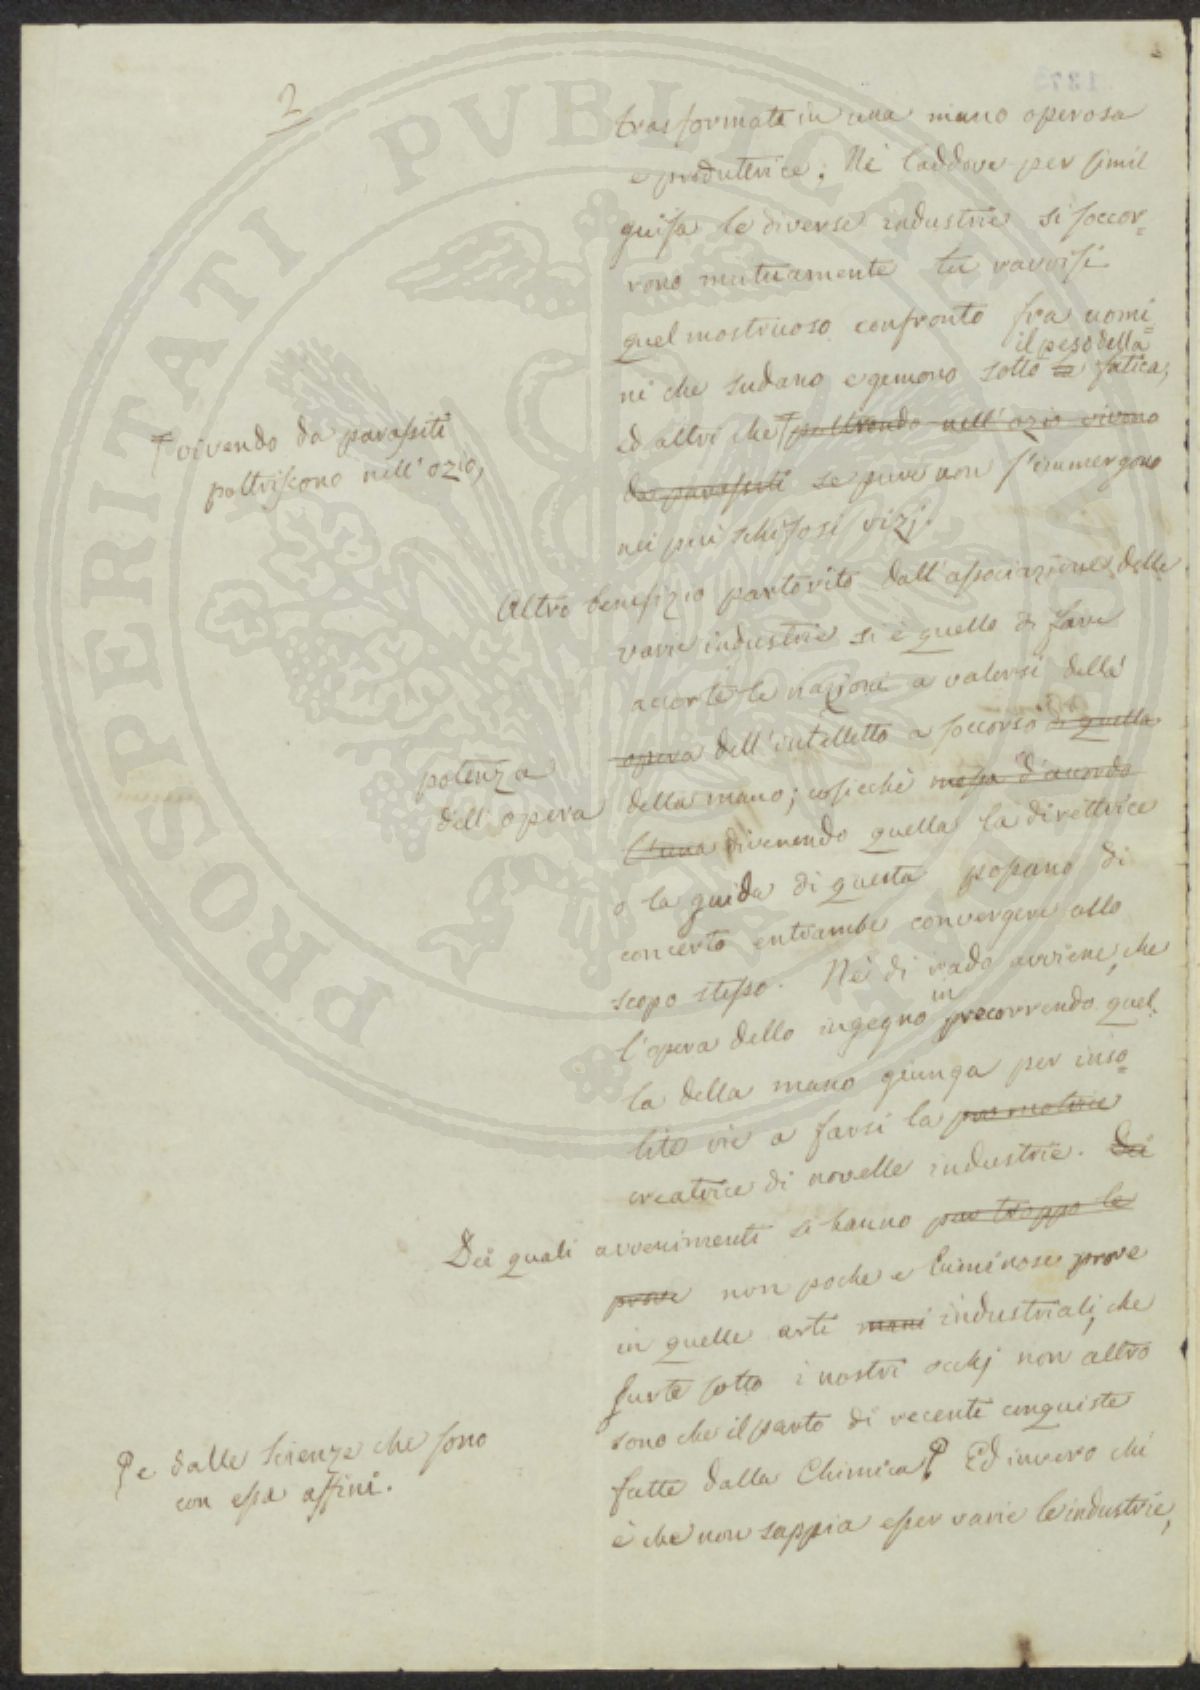 2
trasformata in una mano operosa
e produttrice; Nè laddove per simil
guisa le diverse industrie si soccor=
rono mutuamente tu ravvisi
quel mostruoso confronto fra uomi=
il peso della
ni che sudano e gemono sotto la fatica,
ed altri che poltrendo nell'ozio vivono
vivendo da parassiti
poltriscono nell'ozio,
da parassiti se pure non s'immergono
nei più schifosi vizj.
Altro benefizio partorito dall'associazione delle
varie industrie si è quello di fare
accorte le nazioni a valersi della
opera dell'intelletto a soccorso di quella
potenza
dell'opera
della mano; cosicchè messa d'accordo
l'una divenendo quella la direttrice
o la guida di questa possano di
concerto entrambe convergere allo
scopo stesso. Nè di rado avviene, che
in
l'opera dello ingegno precorrendo quel=
la della mano giunga per inso=
lite vie a farsi la promotrice
creatrice di novelle industrie. Dei
Dei quali avvenimenti si hanno pur troppo le
prove non poche e luminose prove
in quelle arti mani industriali, che
surte sotto i nostri occhj non altro
sono che il parto di recenti conquiste
fatte dalla Chimica Ed invero chi
e dalle Scienze che sono
con essa affini.
è che non sappia esser varie le industrie,
PROSPERITATI PUBLICAE